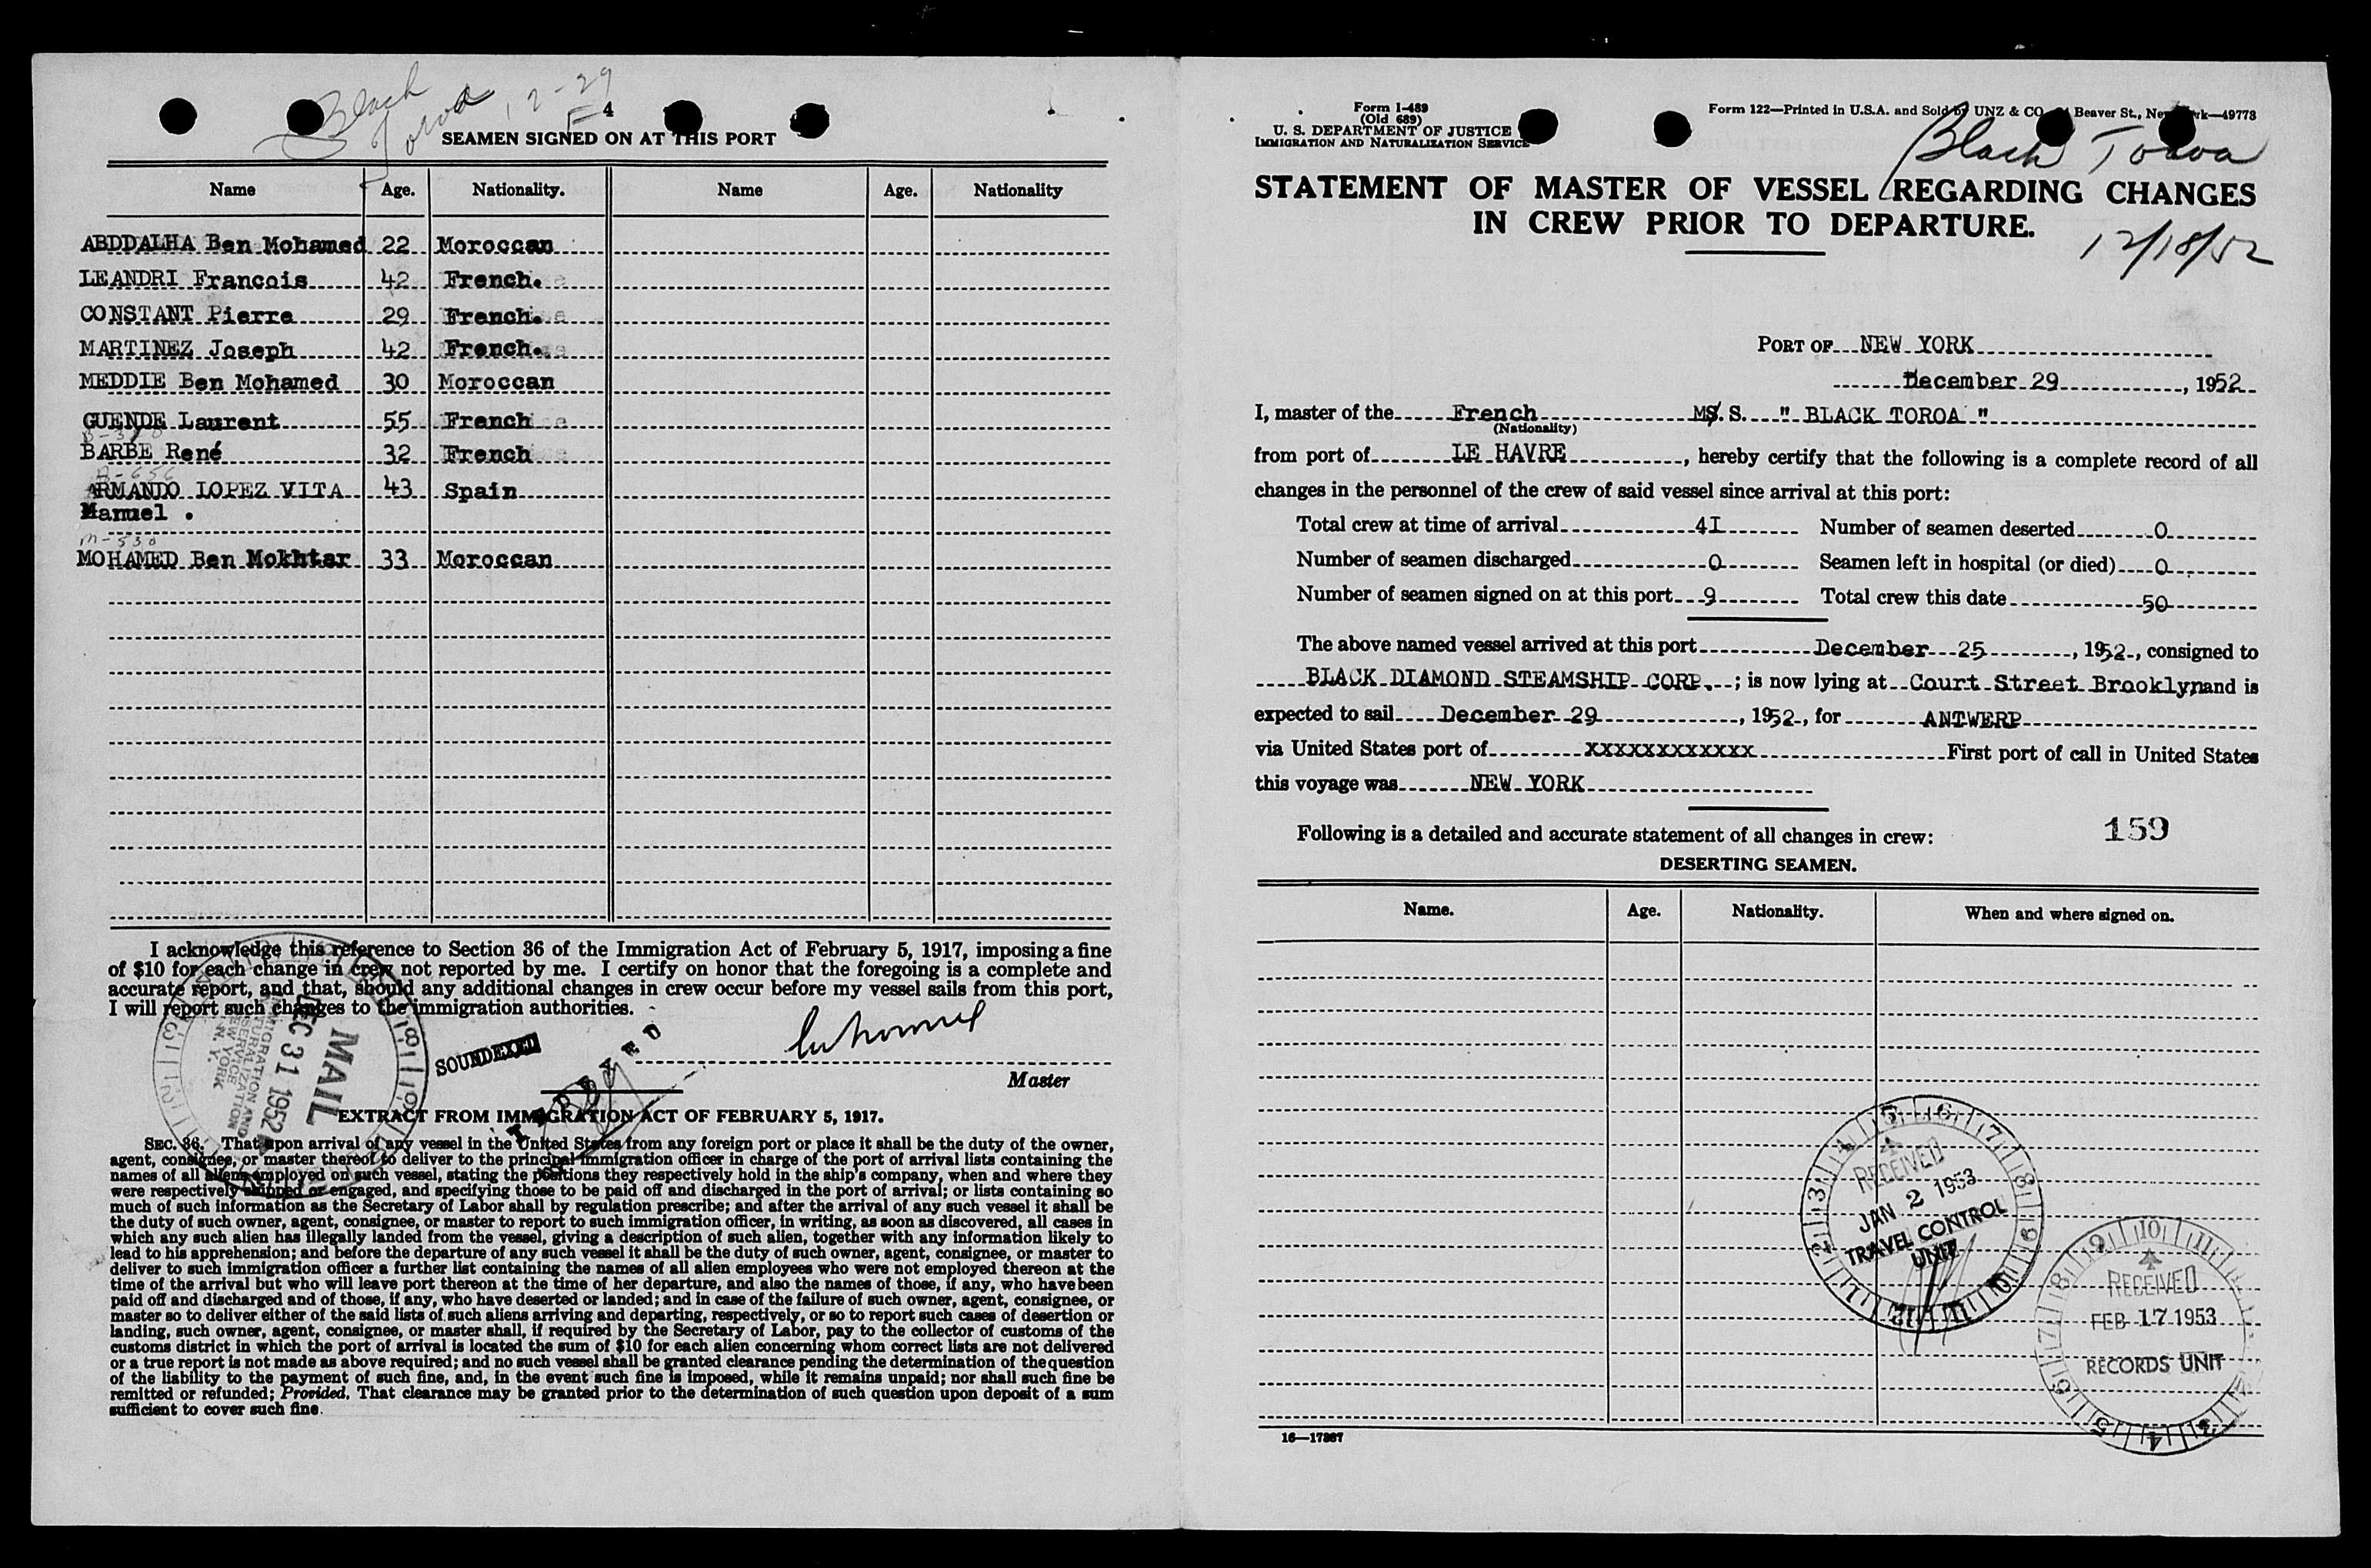 Black
Toroa 12-29
F
4
SEAMEN SIGNED ON AT THIS PORT
Name Age. Nationality. Name Age. Nationality
ABDDALHA Ben Mohamed 22 Moroccan
LEANDRI Francois 42 French.
CONSTANT Pierre 29 French.
MARTINEZ Joseph 42 French.
MEDDIE Ben Mohamed 30 Moroccan
GUENDE Laurent 55 French
BARBE René 32 French
B-656
ARMANDO LOPEZ VITA 43 Spain
Manuel .
M-530
MOHAMED Ben Mokhtar 33 Moroccan
I acknowledge this reference to Section 36 of the Immigration Act of February 5, 1917, imposing a fine
of $10 for each change in crew not reported by me. I certify on honor that the foregoing is a complete and
accurate report, and that, should any additional changes in crew occur before my vessel sails from this port,
I will report such changes to the immigration authorities.
MAIL
DEC 31 1952
IMMIGRATION AND
NATURALIZATION
SERVICE
NEW YORK
N. Y.
SOUNDEXED
Master
EXTRACT FROM IMMIGRATION ACT OF FEBRUARY 5, 1917.
SEC. 36. That upon arrival of any vessel in the United States from any foreign port or place it shall be the duty of the owner,
agent, consignee, or master thereof to deliver to the principal immigration officer in charge of the port of arrival lists containing the
names of all aliens employed on such vessel, stating the positions they respectively hold in the ship's company, when and where they
were respectively shipped or engaged, and specifying those to be paid off and discharged in the port of arrival; or lists containing so
much of such information as the Secretary of Labor shall by regulation prescribe; and after the arrival of any such vessel it shall be
the duty of such owner, agent, consignee, or master to report to such immigration officer, in writing, as soon as discovered, all cases in
which any such alien has illegally landed from the vessel, giving a description of such alien, together with any information likely to
lead to his apprehension; and before the departure of any such vessel it shall be the duty of such owner, agent, consignee, or master to
deliver to such immigration officer a further list containing the names of all alien employees who were not employed thereon at the
time of the arrival but who will leave port thereon at the time of her departure, and also the names of those, if any, who have been
paid off and discharged and of those, if any, who have deserted or landed; and in case of the failure of such owner, agent, consignee, or
master so to deliver either of the said lists of such aliens arriving and departing, respectively, or so to report such cases of desertion or
landing, such owner, agent, consignee, or master shall, if required by the Secretary of Labor, pay to the collector of customs of the
customs district in which the port of arrival is located the sum of $10 for each alien concerning whom correct lists are not delivered
or a true report is not made as above required; and no such vessel shall be granted clearance pending the determination of the question
of the liability to the payment of such fine, and, in the event such fine is imposed, while it remains unpaid; nor shall such fine be
remitted or refunded; Provided, That clearance may be granted prior to the determination of such question upon deposit of a sum
sufficient to cover such fine.
Form I-489
(Old 689)
U. S. DEPARTMENT OF JUSTICE
IMMIGRATION AND NATURALIZATION SERVICE
Form 122—Printed in U.S.A. and Sold by UNZ & CO. Beaver St., New York—49773
Black Toroa
STATEMENT OF MASTER OF VESSEL REGARDING CHANGES
IN CREW PRIOR TO DEPARTURE.
12/18/52
PORT OF NEW YORK
December 29, 1952
I, master of the French MS. S. " BLACK TOROA "
(Nationality)
from port of LE HAVRE, hereby certify that the following is a complete record of all
changes in the personnel of the crew of said vessel since arrival at this port:
Total crew at time of arrival 4I Number of seamen deserted 0
Number of seamen discharged 0 Seamen left in hospital (or died) 0
Number of seamen signed on at this port 9 Total crew this date 50
The above named vessel arrived at this port December 25, 1952, consigned to
BLACK DIAMOND STEAMSHIP CORP.; is now lying at Court Street Brooklyn and is
expected to sail December 29, 1952, for ANTWERP
via United States port of XXXXXXXXXXXX First port of call in United States
this voyage was NEW YORK
Following is a detailed and accurate statement of all changes in crew: 159
DESERTING SEAMEN.
Name. Age. Nationality. When and where signed on.
RECEIVED
JAN 2 1953
TRAVEL CONTROL
UNIT
RECEIVED
FEB 17 1953
RECORDS UNIT
16—17387